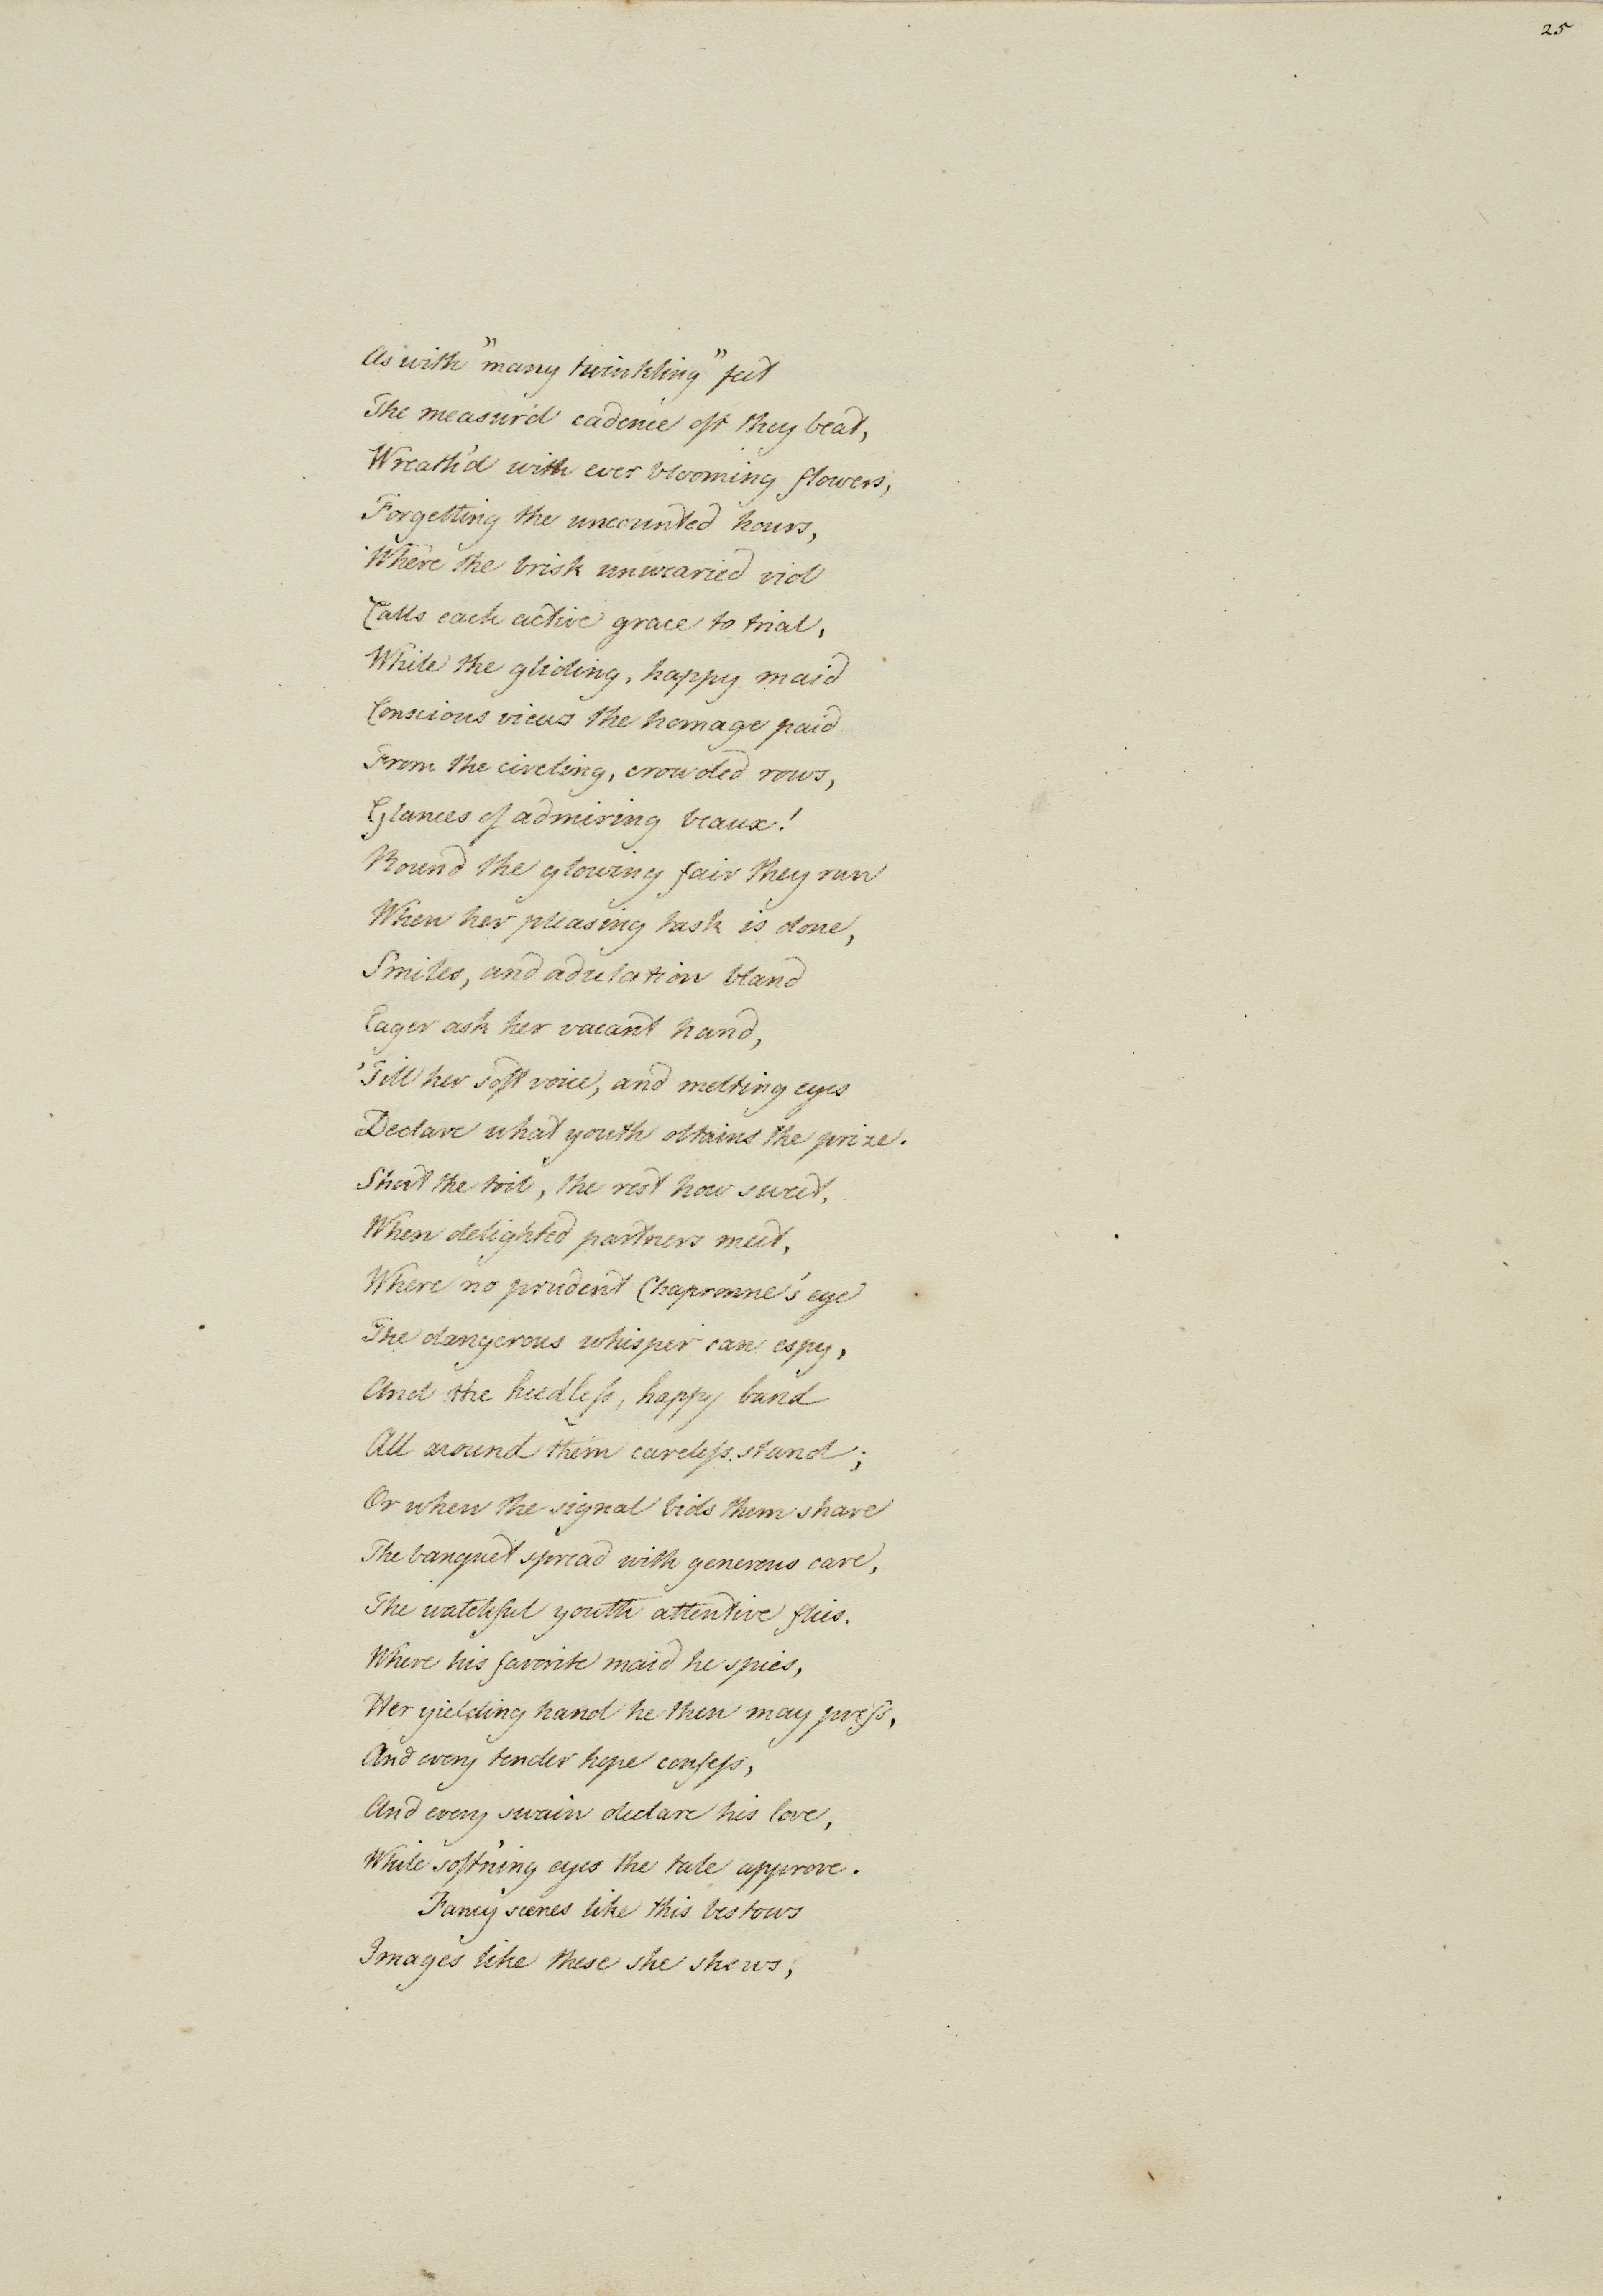 25
As with "many twinkling" feet
The measur'd cadence oft they beat,
Wreath'd with ever blooming flowers,
Forgetting the uncounted hours,
Where the brisk unwearied viol
Calls each active grace to trial,
While the gliding, happy maid
Conscious views the homage paid
From the circling, crowded rows,
Glances of admiring beaux!
Round the glowing fair they run
When her pleasing task is done,
Smiles, and adulation bland
Eager ask her vacant hand,
'Till her soft voice, and melting eyes
Declare what youth obtains the prize.
Short the toil, the rest how sweet,
When delighted partners meet,
Where no prudent Chapronne's eye
The dangerous whisper can espy,
And the heedless, happy band
All around them careless stand;
Or when the signal bids them share
The banquet spread with generous care,
The watchful youth attentive flies,
Where his favorite maid he spies,
Her yielding hand he then may press,
And every tender hope confess,
And every swain declare his love,
While soft'ning eyes the tale approve.
Fancy scenes like this bestows
Images like these she shews,